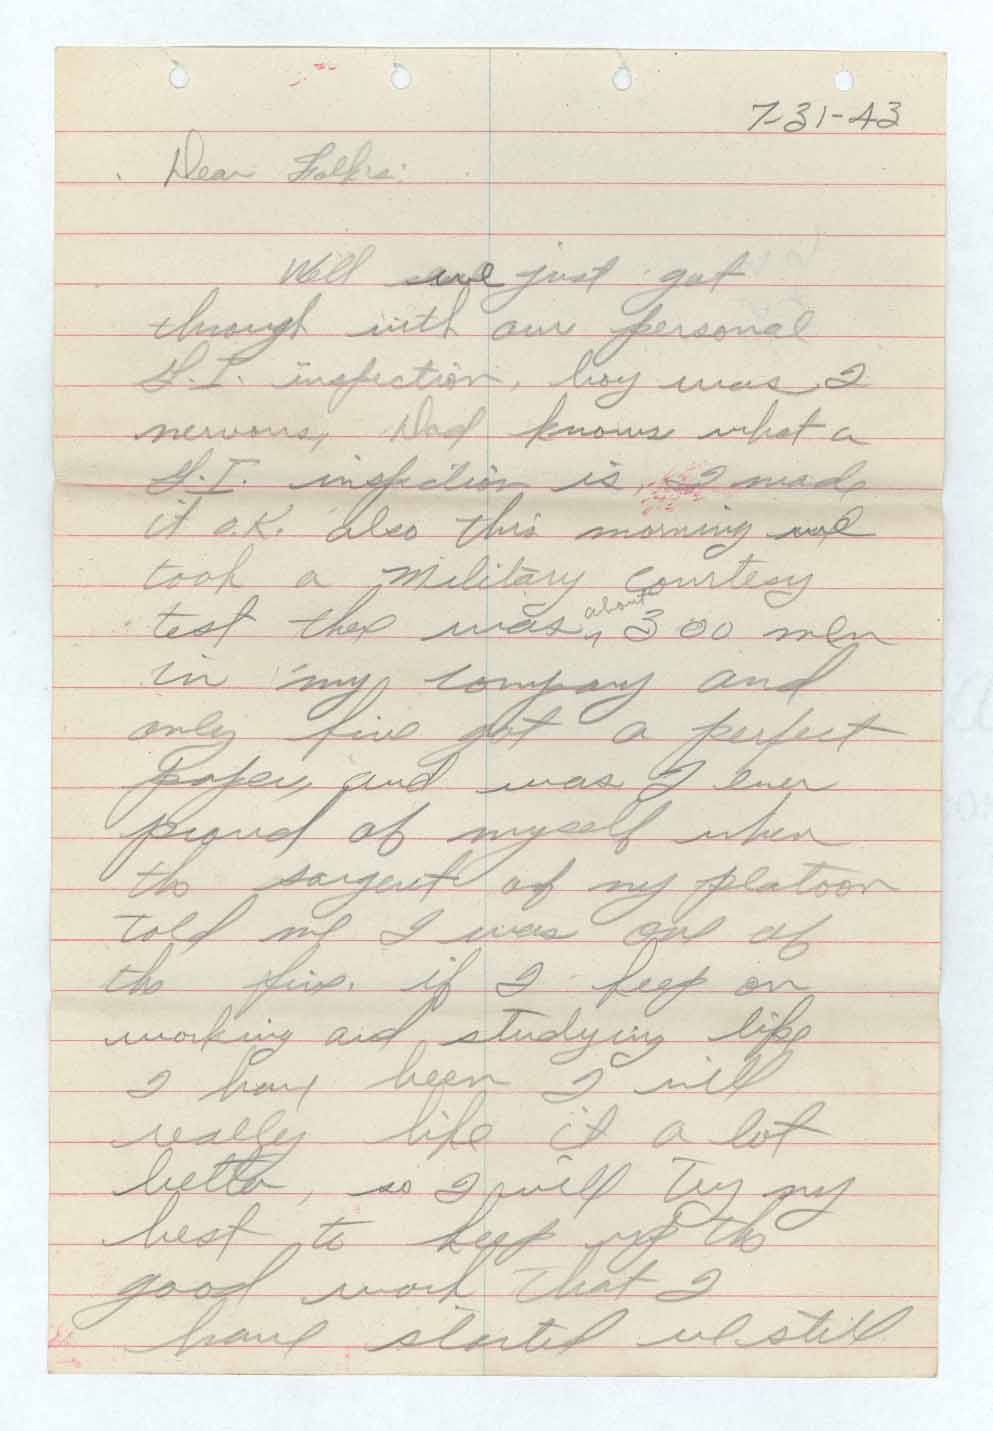 7-31-43
Dear Folks:
Well we just got
through with our personal
G.I. inspection, boy was I
nervous, Dad knows what a
G.I. inspection is, I made
it o.K. also this morning we
took a Military Courtesy
test ther was about 300 men
in my company and
only five got a perfect
paper, and was I ever
proud of myself when
the sargent of my platoon
told me I was one of
the five. if I keep on
working and studying like
I have been I will
really like it a lot
better, so I will Try my
best to keep up the
good work that I
have started we still